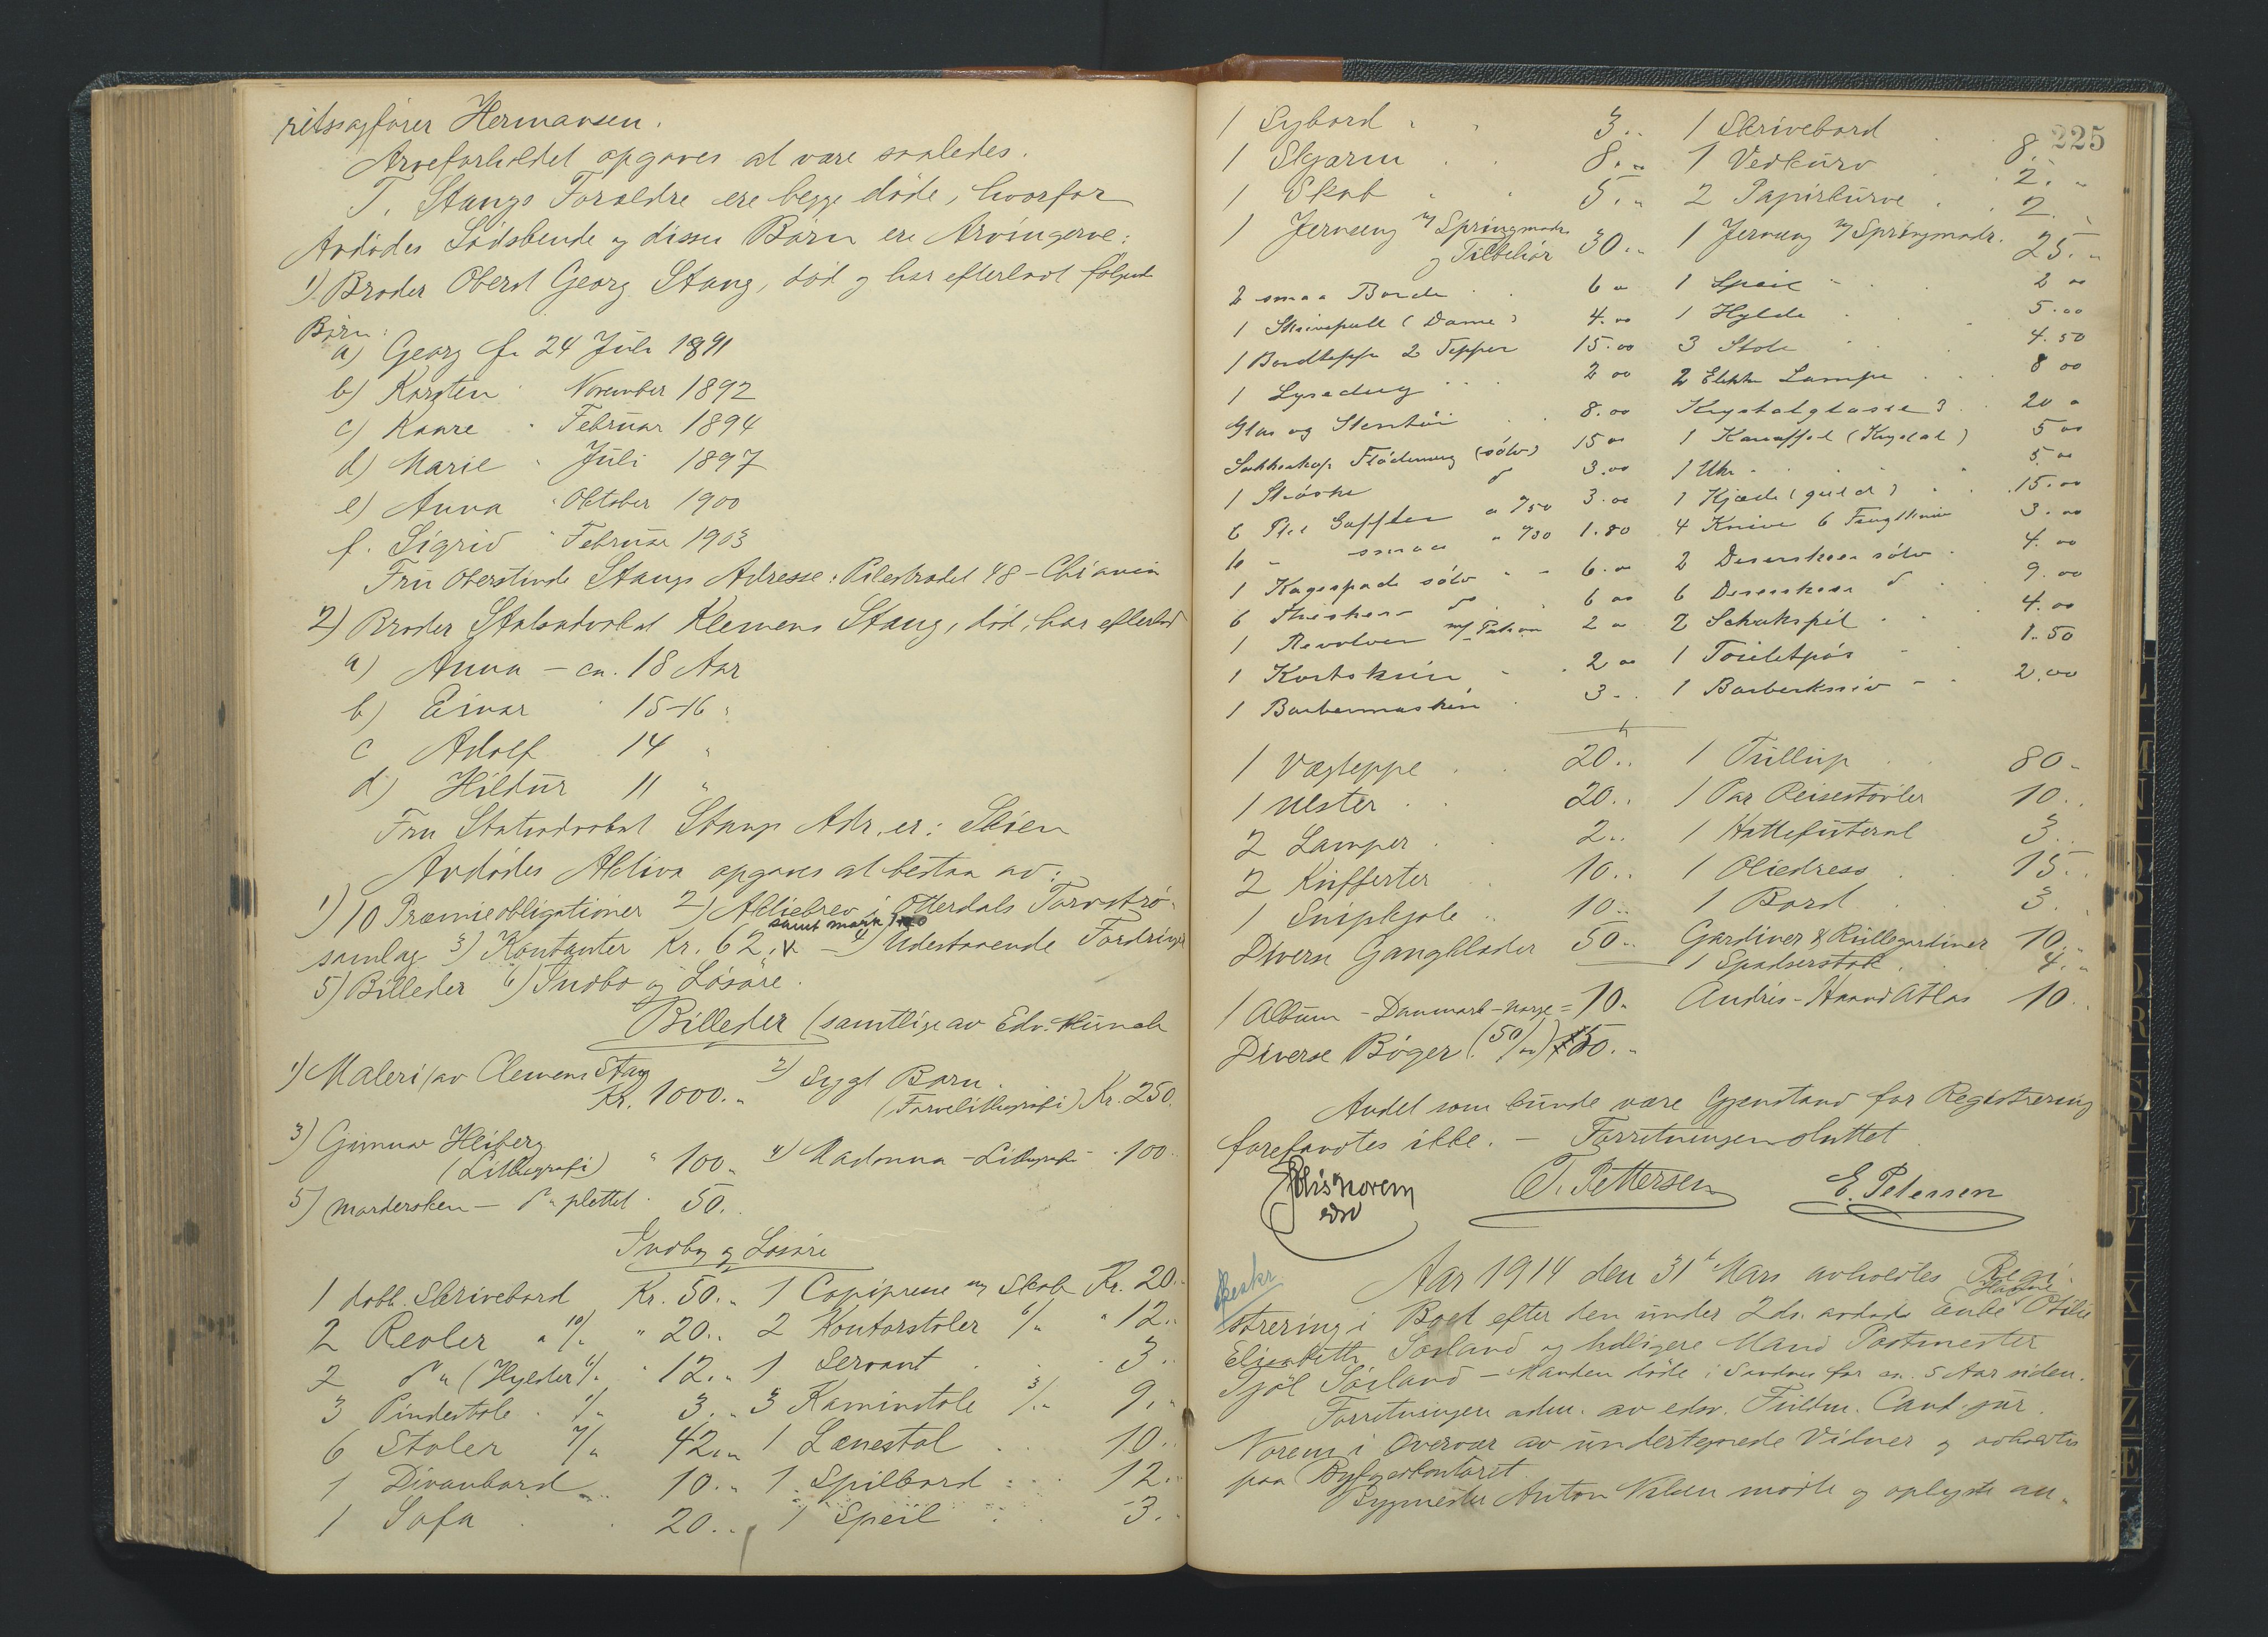 retssagfører Hermansen.
Arveforholdet opgaves at være saaledes.
T. Stangs Forældre ere begge døde, hvorfor
Avdødes Sødskende og disses Børn ere Arvingerne:
1) Broder Oberst Georg Stang, død og har efterladt følgende
Børn:
a) Georg f. 24 Juli 1891
b) Karsten " November 1892
c) Kaare " Februar 1894
d) Marie " Juli 1897
e) Anna " Oktober 1900
f. Sigrid " Februar 1903
Fru Oberstinde Stangs Adresse: Pilestrædet 48 - Chiania
2) Broder Statsadvokat Klemens Stang, død, har efterladt
a) Anna - ca. 18 Aar
b) Einar " 15-16 "
c Adolf 14 "
d) Hildur 11 "
Fru Statsadvokat Stangs Adr. er: Skien
Avdødes Aktiva opgaves at bestaa av:
1) 10 Præmieobligationer 2) Aktiebrev i Otterdals Torvstrø-
samlag 3) Kontanter Kr. 62. samt mark 4) Udestaaende Fordringer
5) Billeder 6) Indbo og Løsøre.
Billeder (samtlige av Edv. Munch
1) Maleri av Clemens Stang Kr. 1000.- 2) Sygt Barn. (Farvelithografi) Kr. 250.
3) Gunnar Heiberg (Lithografi) " 100.- 4) Madonna - Lithografi - " 100
5) Mordersken - do plettet " 50.
Indbo og Løsøre
1 dobb. Skrivebord Kr. 50.- 1 Copipresse og Skab Kr. 20.-
2 Reoler a 10/- " 20.. 2 Kontorstoler 6/- " 12..
2 do (Hylder 6/- " 12.- 1 Servant 3..
3 Pindestole 1/- 3.- 3 Kaminstole 3/- 9.-
6 Stoler 7/- 42.- 1 Lænestol 10..
1 Divanbord 10.- 1 Spilbord 12.
1 Sofa 20.. 1 Speil 3.
225
1 Sybord 3.. 1 Skrivebord 8.
1 Skjærm 8.- 1 Vedkurv 2.-
1 Skab 5.- 2 Papirkurve 2.
1 Jernseng m/ Springmadr. og Tilbehør 30.- 1 Jernseng m/ Springmadr. 25.-
2 smaa Borde 6 " 1 Speil 2 00
1 Skrivepult (Dame) 4.00 1 Hylde 5.00
1 Bordteppe 2 Tepper 15.00 3 Stole 4.50
1 Lysedug 2 00 2 Elektr Lampe 8 00
Glas og Stentøi 8.00 Krystalglasse 3 20 "
Sukkerskaj Flødemug (sølv) 15 00 1 Karaffel (Krystal) 5 00
1 Strøske do 3.00 1 Uhr 5.00
6 Plet Gafler a 50 3.00 1 Kjæde (guld) 15.00
6 " smaa a 30 1.80 4 Knive 6 Frugtknive 3.00
1 Kagespade sølv 6.00 2 Desertskeer sølv 4.00
6 Theskeer do 6 00 6 Desertskeer do 9.00
1 Revolver m/ Patron 2 " 2 Schakspil 4.00
1 Kortskrin 2 00 1 Toiletspeil 1.50
1 Barbermaskin 3.- 1 Barberkniv 2.00
1 Vægteppe 20.. 1 Tullup 80.-
1 Ulster 20.. 1 Par Reisestøvler 10..
2 Lamper 2.. 1 Hattefuteral 3.
2 Kufferter 10.. 1 Oliedress 15.
1 Snipkjole 10.. 1 Bord 3.
Diverse Gangklæder 50.. Gardiner & Rullegardiner 10.-
1 Spadserstok 4.-
1 Album - Danmark-Norge = 10.- Andrés - Haand Atlas 10.
Diverse Bøger (50/-) 50.-
Andet som kunde være Gjenstand for Registrering
forefandtes ikke. - Forretningen sluttet.
Chr Norem
edsv
T. Pettersen
E. Petersen
Beskr
Aar 1914 den 31te Mars avholdtes Regi-
strering i Boet efter den under 2ds. avdøde Enke Otilie
Elisabeth Sørland og tidligere Mand Postmester
Sørland - Manden døde i Sandnes for ca. 5 Aar siden.
Forretningen adm. av edsv. Fuldm. Cand. jur.
Norem i Overvær av undertegnede Vidner og avholdtes
paa Byfogedkontoret.
Bygmester Anton Nilsen mødte og oplyste an-